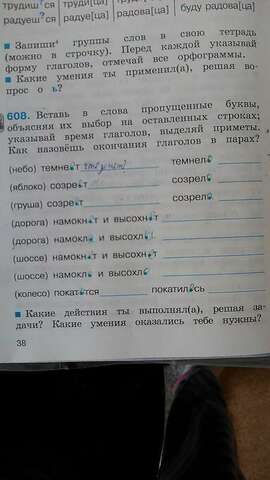 трудишься труди[ца] радова[ца] буду радова[ца]
радуешься радуе[ца]
■ Запиши⁴ группы слов в свою тетрадь
(можно в строчку). Перед каждой указывай
форму глаголов, отмечай все орфограммы.
■ Какие умения ты применил(а), решая во-
прос о ь?
608. Вставь в слова пропущенные буквы,
объясняя их выбор на оставленных строках;
указывай время глаголов, выделяй приметы.
Как назовёшь окончания глаголов в парах?
(небо) темнет темнел
(яблоко) созрет созрел
(груша) созрет созрел
(дорога) намокнт и высохнт
(дорога) намокл и высохл
(шоссе) намокнт и высохнт
(шоссе) намокл и высохл
(колесо) покаттся покатилсь
■ Какие действия ты выполнял(а), решая за-
дачи? Какие умения оказались тебе нужны?
38